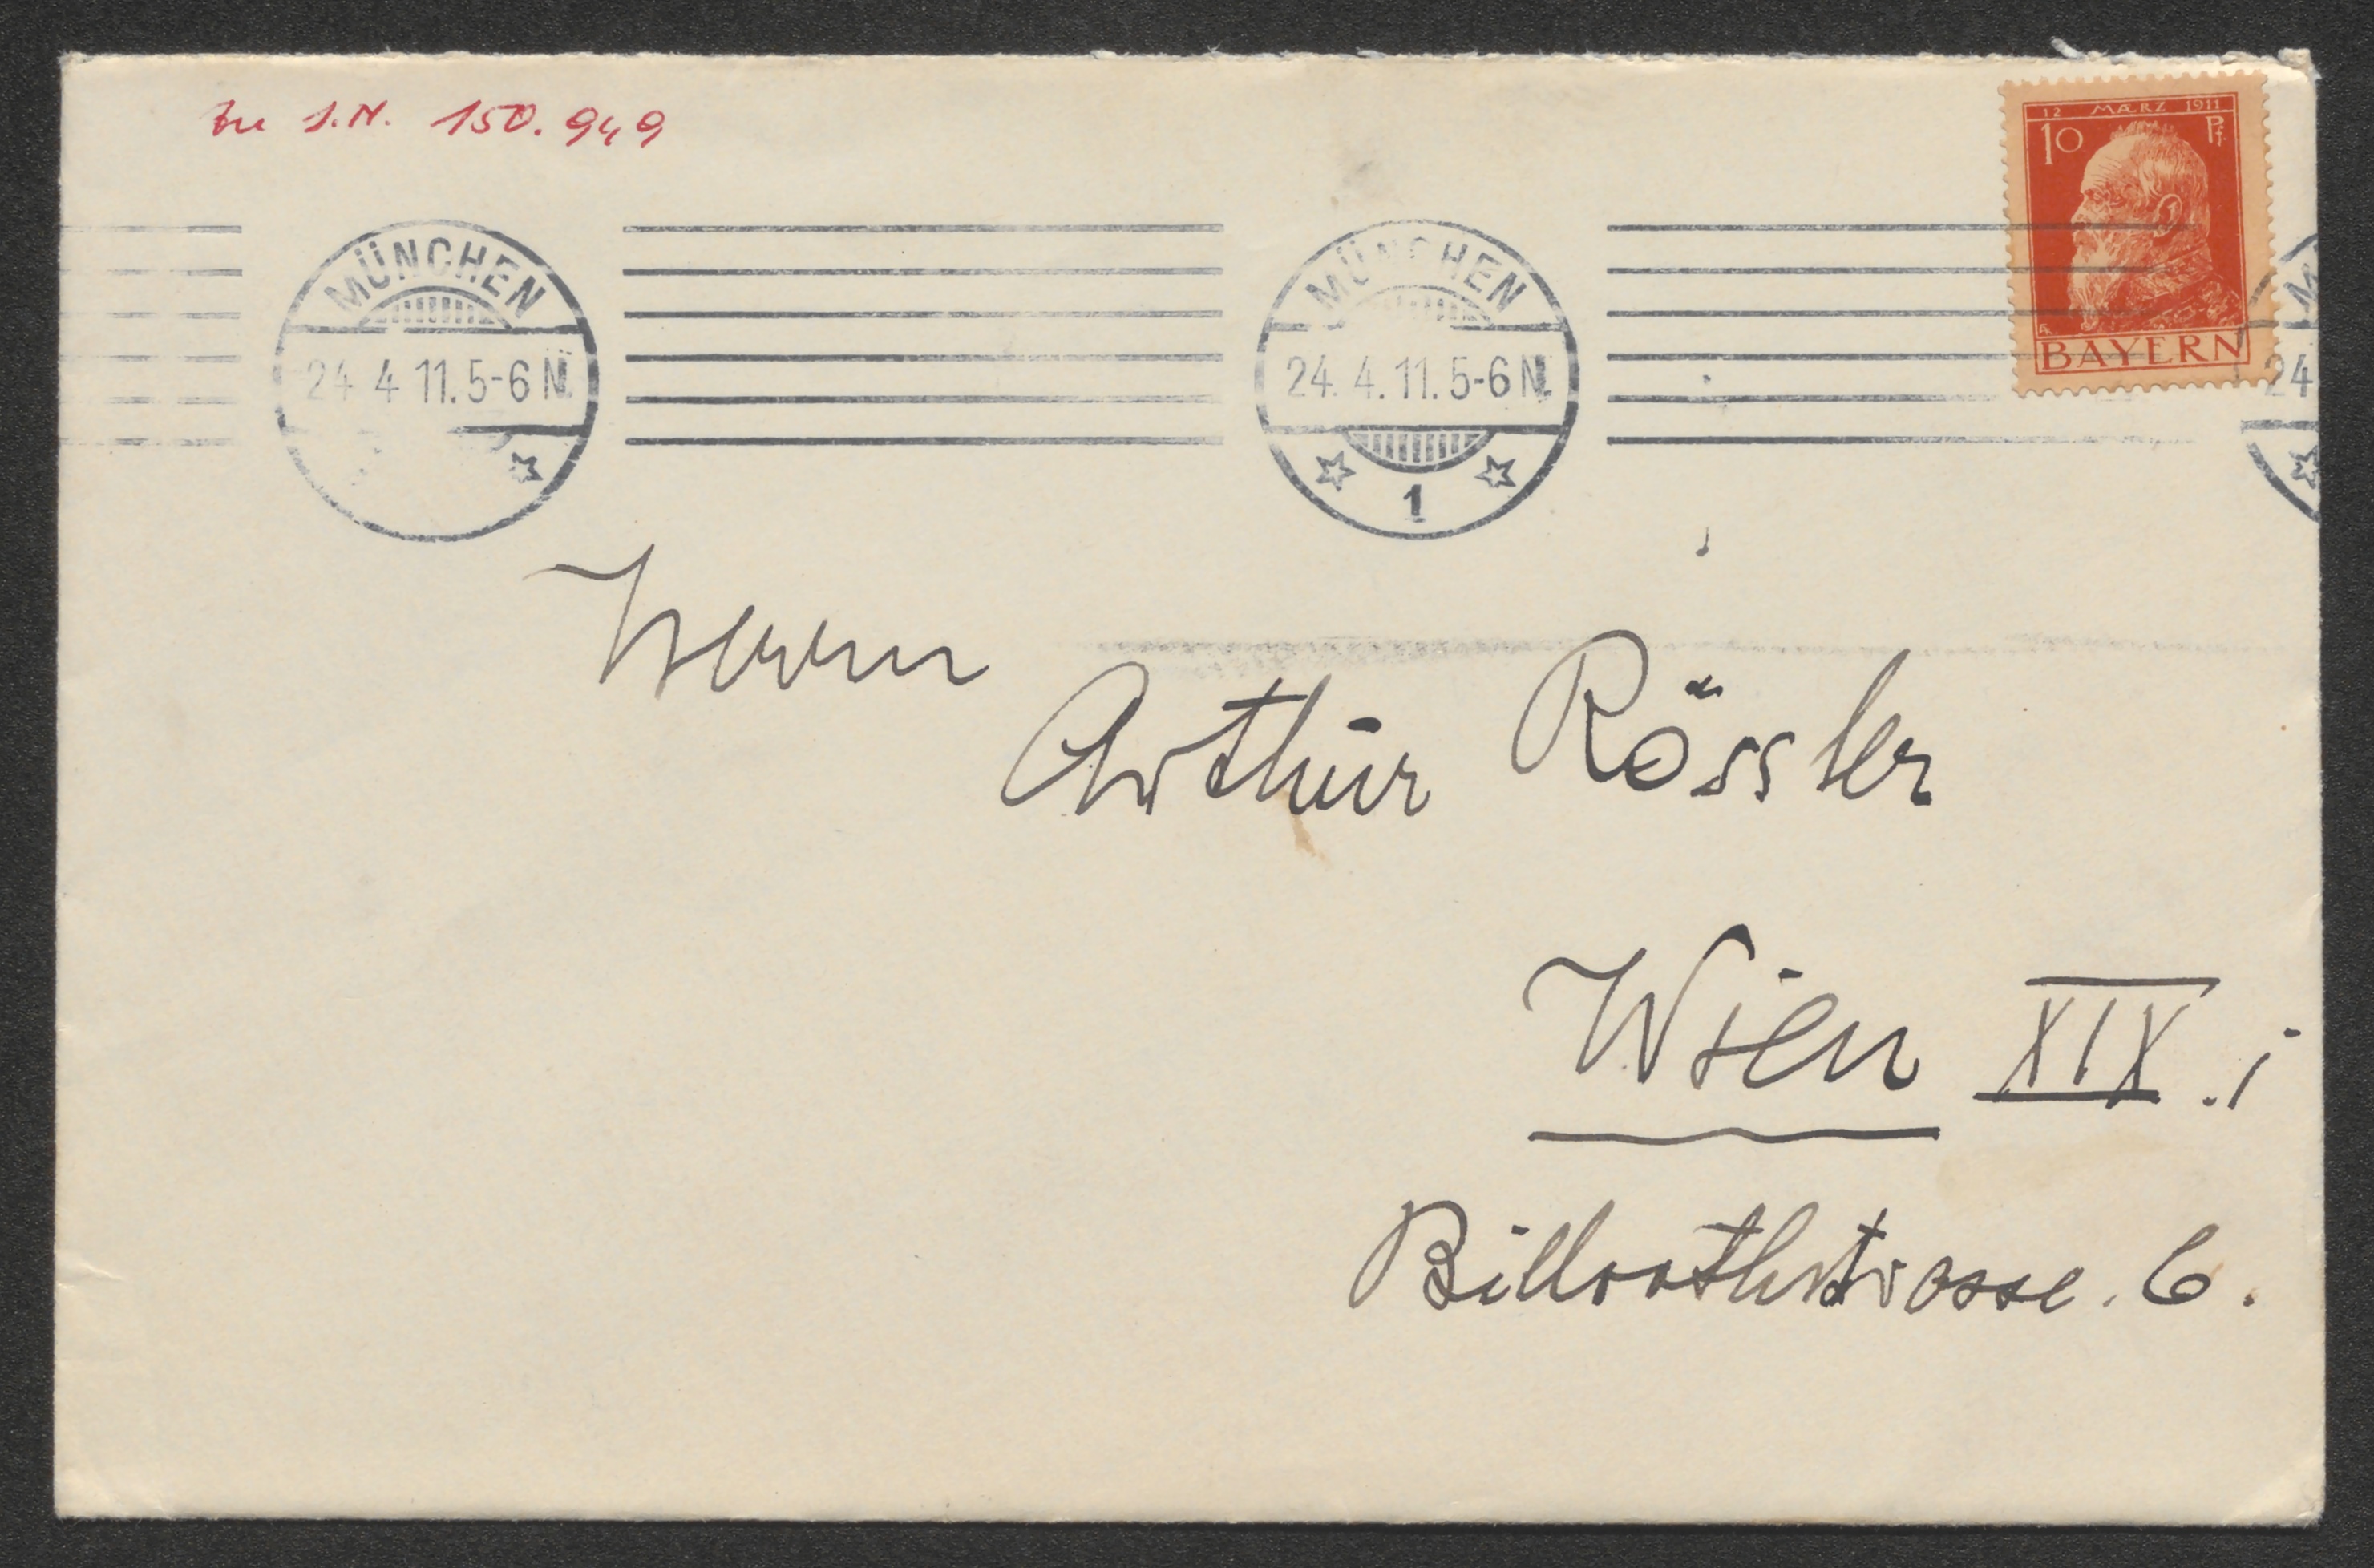 zu I.N. 150.949
12 MÆRZ 1911
10 Pf.
BAYERN
MÜNCHEN
24 4 11. 5-6 N.
MÜNCHEN
24. 4. 11. 5-6 N.
1
M
24
Herrn
Arthur Rössler
Wien XIX. i
Billrothstrasse. 6.